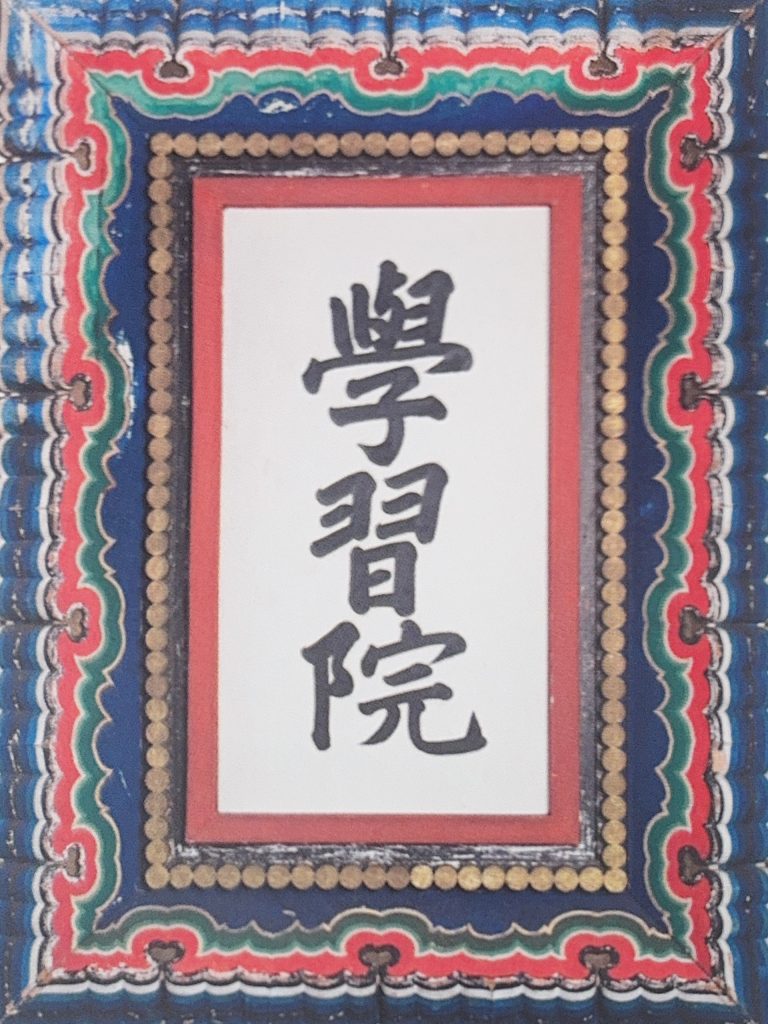 學習院